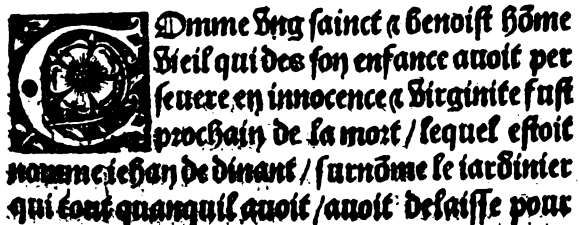 COmme Vng sainct ⁊ benoist hõme
Vieil qui des son enfance auoit per
seuere en innocence ⁊ Virginite fust
prochain de la mort / lequel estoit
nomme iehan de dinant / surnõme le iardinier
qui tout quanquil auoit / auoit delaisse pour